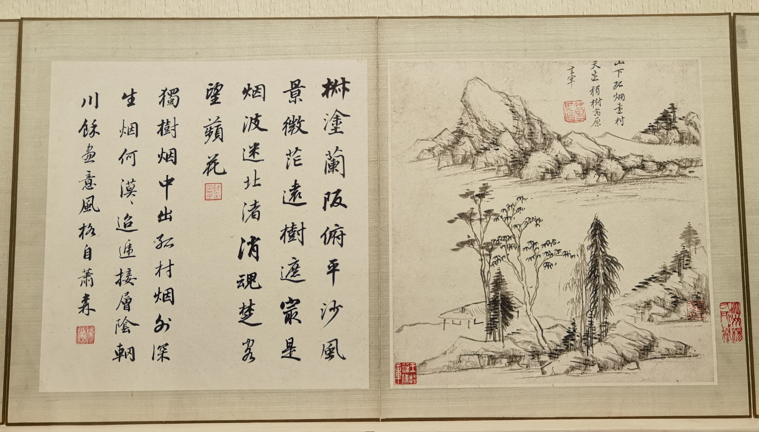 山下孤烟遠村
天邊獨樹高原
椒塗蘭阪俯平沙風
景微茫遠樹遮寂是
烟波迷北渚消魂楚客
望蘋花
獨樹烟中出孤村烟外深
生烟何漠、迢遞接層陰輞
川餘畫意風格自蕭森